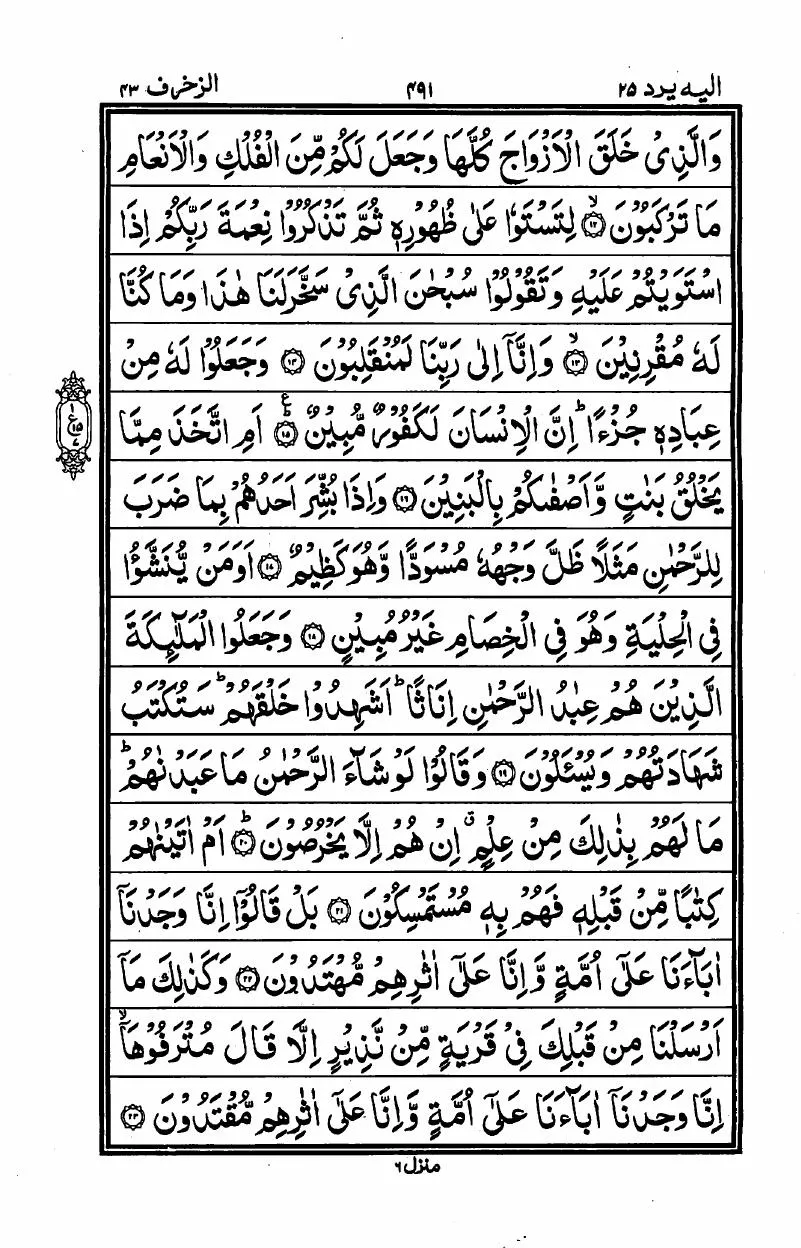 الیه یرد ۲۵ ۴۹۱ الزخرف ۴۳
وَالَّذِیْ خَلَقَ الْاَزْوَاجَ كُلَّهَا وَجَعَلَ لَكُمْ مِّنَ الْفُلْكِ وَالْاَنْعَامِ
مَا تَرْكَبُوْنَ ﴿۱۲﴾ۙ لِتَسْتَوٗا عَلٰی ظُهُوْرِهٖ ثُمَّ تَذْكُرُوْا نِعْمَةَ رَبِّكُمْ اِذَا
اسْتَوَیْتُمْ عَلَیْهِ وَتَقُوْلُوْا سُبْحٰنَ الَّذِیْ سَخَّرَلَنَا هٰذَا وَمَا كُنَّا
لَهٗ مُقْرِنِیْنَ ﴿۱۳﴾ۙ وَاِنَّاۤ اِلٰی رَبِّنَا لَمُنْقَلِبُوْنَ ﴿۱۴﴾ وَجَعَلُوْا لَهٗ مِنْ
عِبَادِهٖ جُزْءًا ؕ اِنَّ الْاِنْسَانَ لَكَفُوْرٌ مُّبِیْنٌ ﴿۱۵﴾ؕ ع اَمِ اتَّخَذَ مِمَّا
یَخْلُقُ بَنٰتٍ وَّاَصْفٰىكُمْ بِالْبَنِیْنَ ﴿۱۶﴾ وَاِذَا بُشِّرَ اَحَدُهُمْ بِمَا ضَرَبَ
لِلرَّحْمٰنِ مَثَلًا ظَلَّ وَجْهُهٗ مُسْوَدًّا وَّهُوَ كَظِیْمٌ ﴿۱۷﴾ اَوَمَنْ یُّنَشَّؤُا
فِی الْحِلْیَةِ وَهُوَ فِی الْخِصَامِ غَیْرُ مُبِیْنٍ ﴿۱۸﴾ وَجَعَلُوا الْمَلٰٓىِٕكَةَ
الَّذِیْنَ هُمْ عِبٰدُ الرَّحْمٰنِ اِنَاثًا ؕ اَشَهِدُوْا خَلْقَهُمْ ؕ سَتُكْتَبُ
شَهَادَتُهُمْ وَیُسْـَٔلُوْنَ ﴿۱۹﴾ وَقَالُوْا لَوْ شَآءَ الرَّحْمٰنُ مَا عَبَدْنٰهُمْ ؕ
مَا لَهُمْ بِذٰلِكَ مِنْ عِلْمٍ ۗ اِنْ هُمْ اِلَّا یَخْرُصُوْنَ ﴿۲۰﴾ؕ اَمْ اٰتَیْنٰهُمْ
كِتٰبًا مِّنْ قَبْلِهٖ فَهُمْ بِهٖ مُسْتَمْسِكُوْنَ ﴿۲۱﴾ بَلْ قَالُوْۤا اِنَّا وَجَدْنَاۤ
اٰبَآءَنَا عَلٰۤی اُمَّةٍ وَّاِنَّا عَلٰۤی اٰثٰرِهِمْ مُّهْتَدُوْنَ ﴿۲۲﴾ وَكَذٰلِكَ مَاۤ
اَرْسَلْنَا مِنْ قَبْلِكَ فِیْ قَرْیَةٍ مِّنْ نَّذِیْرٍ اِلَّا قَالَ مُتْرَفُوْهَاۤ ۙ
اِنَّا وَجَدْنَاۤ اٰبَآءَنَا عَلٰۤی اُمَّةٍ وَّاِنَّا عَلٰۤی اٰثٰرِهِمْ مُّقْتَدُوْنَ ﴿۲۳﴾
۱
ع ۱۵
۷
منزل ۶